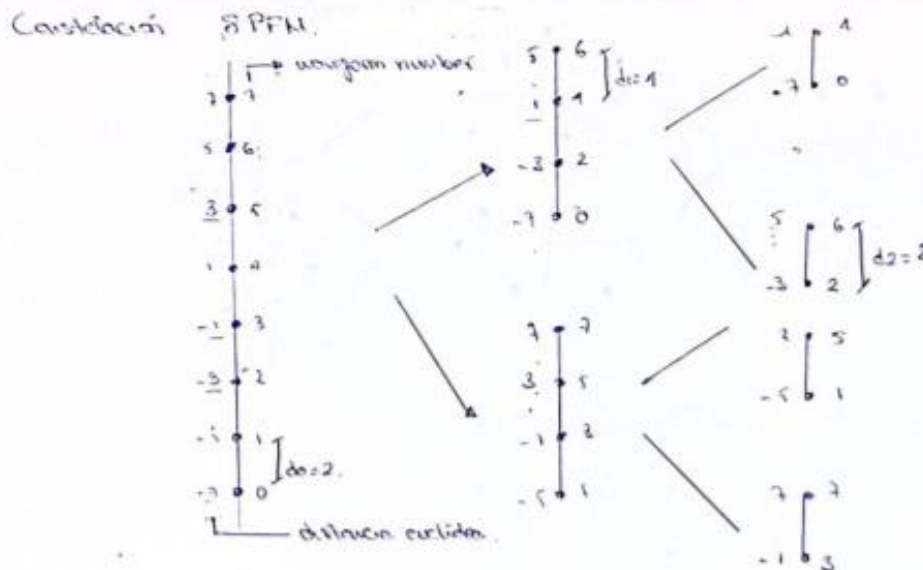 Constelación 8 PAM.
waveform number
7 7
5 6
3 5
1 4
-1 3
-3 2
-5 1
-7 0
d0=2.
distancia euclidea
5 6
1 4
-3 2
-7 0
d1=4
7 7
3 5
-1 3
-5 1
1 4
-7 0
5 6
-3 2
3 5
-5 1
7 7
-1 3